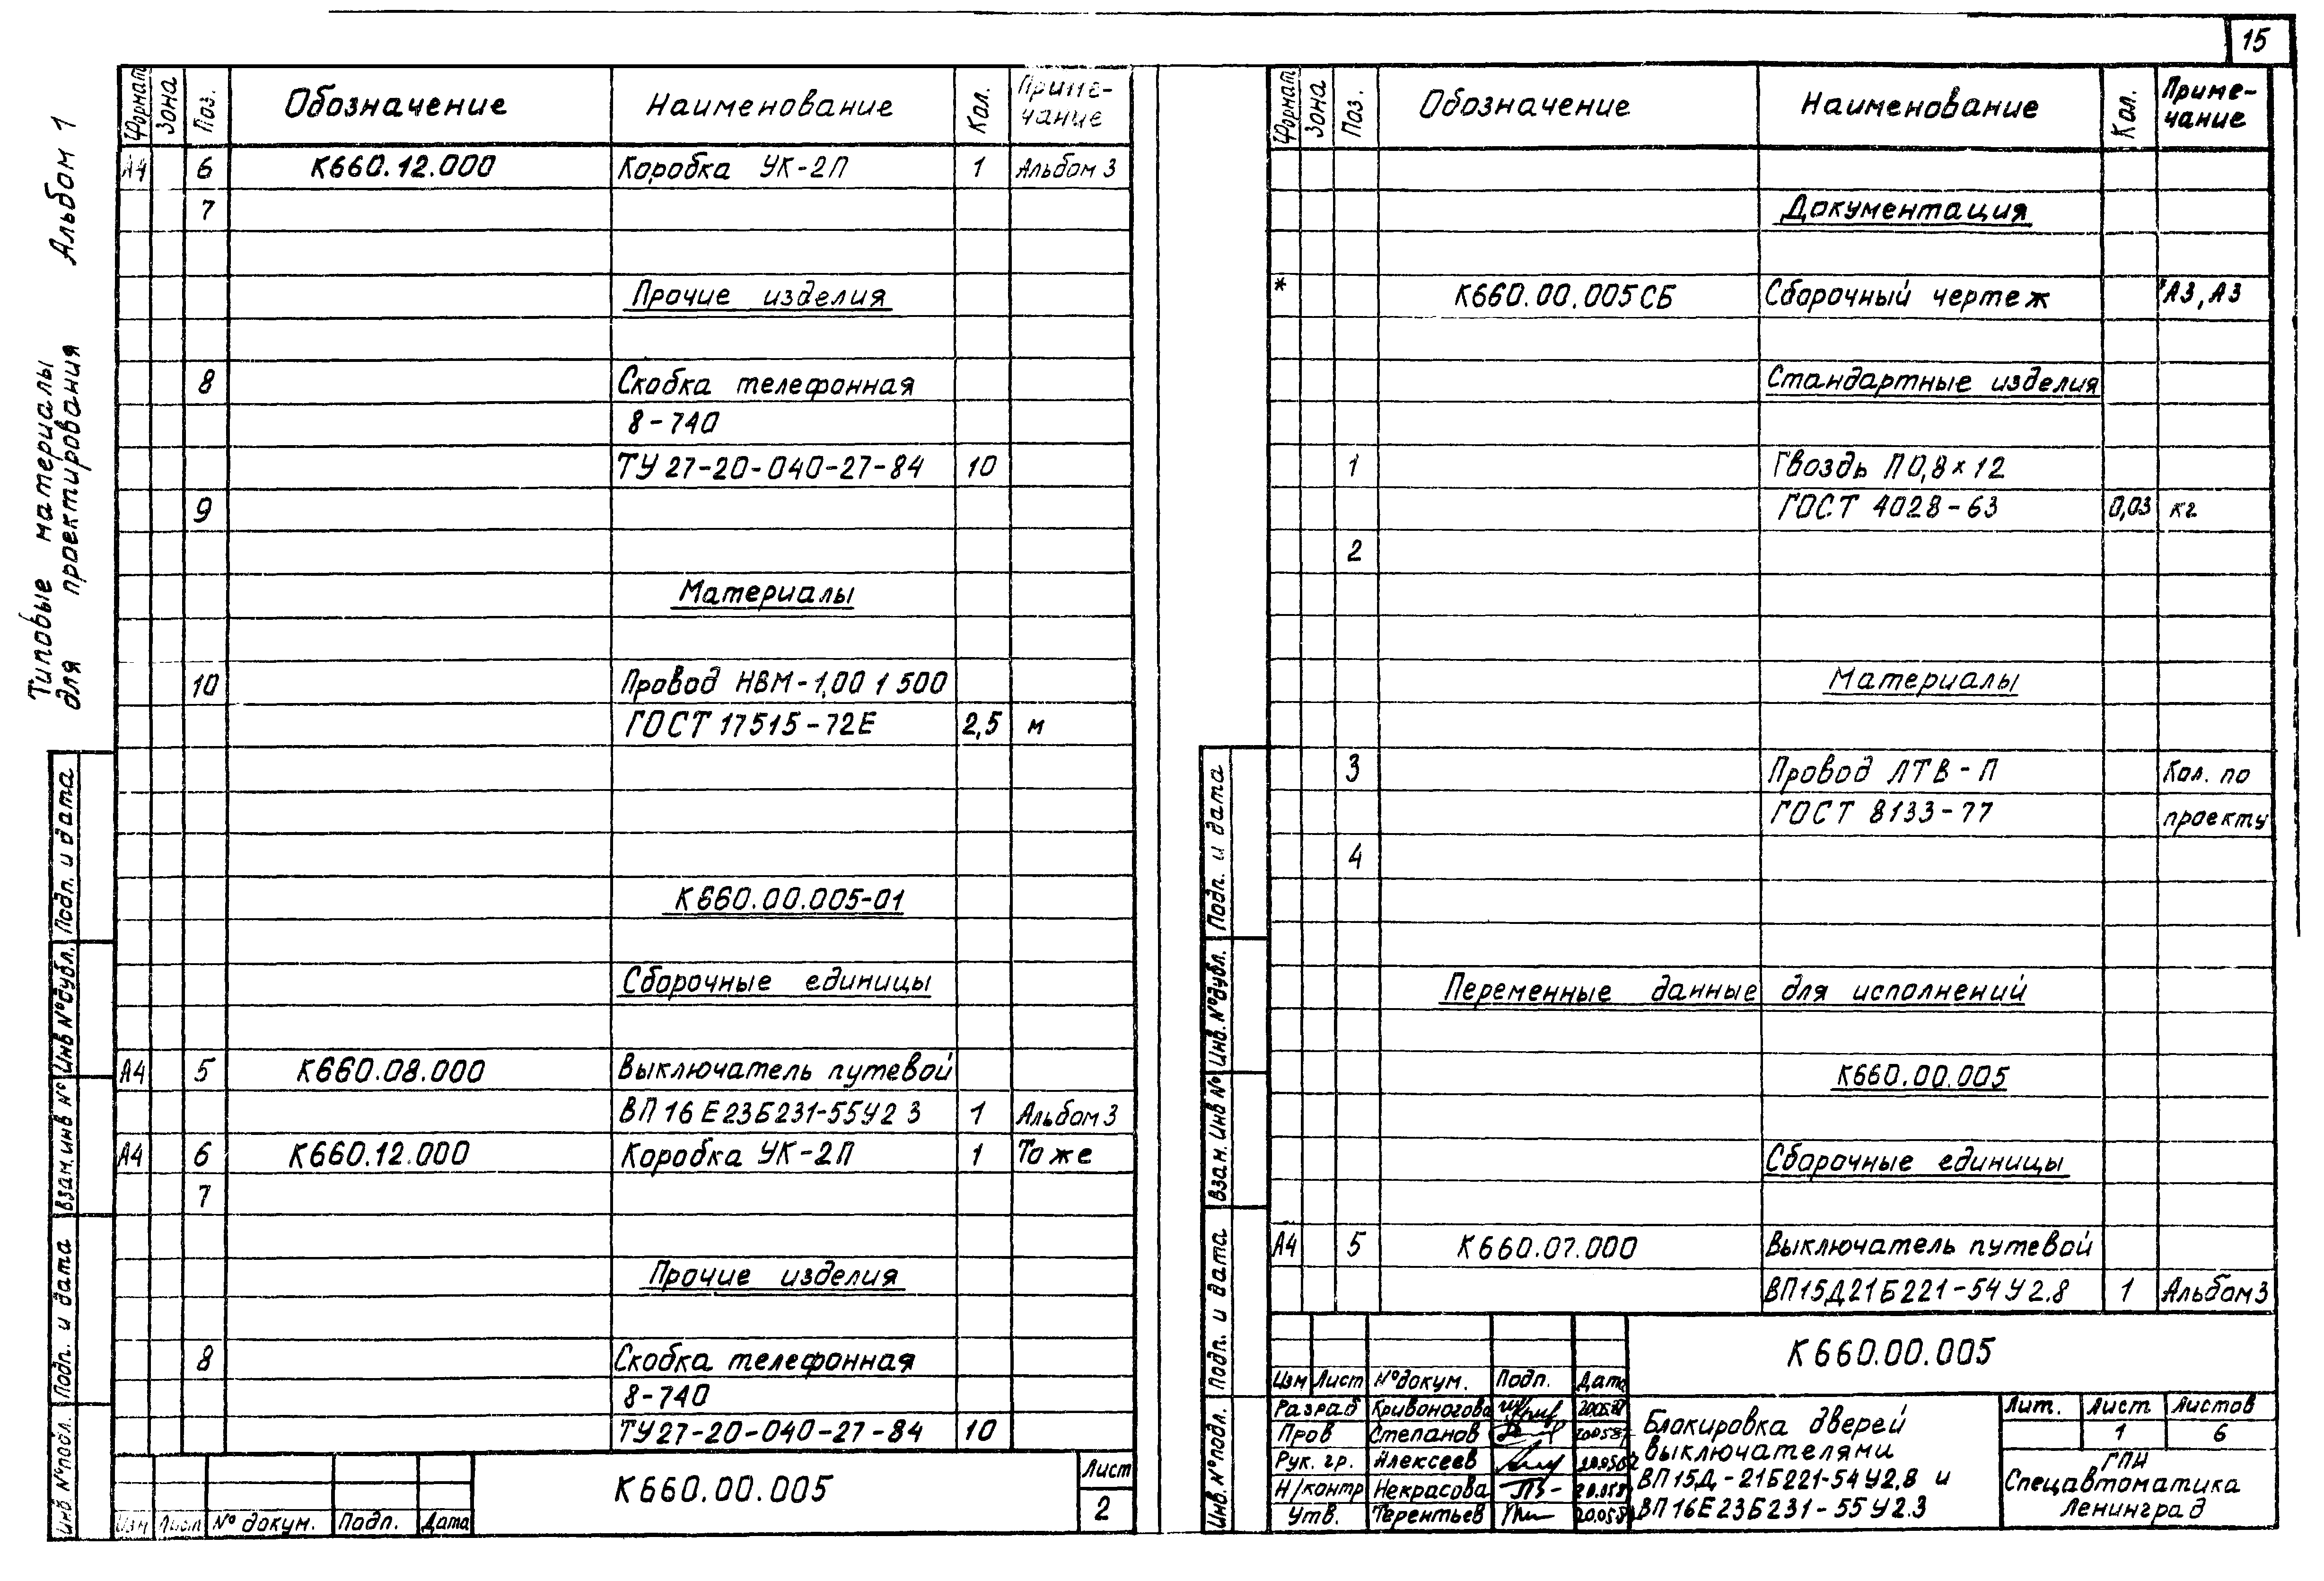 15
Альбом 1
Типовые материалы
для проектирования
Формат Зона Поз. Обозначение Наименование Кол. Приме-
чание
А4 6 К660.12.000 Коробка УК-2П 1 Альбом 3
7
Прочие изделия
8 Скобка телефонная
8-740
ТУ 27-20-040-27-84 10
9
Материалы
10 Провод НВМ-1,00 1 500
ГОСТ 17515-72Е 2,5 м
К660.00.005-01
Сборочные единицы
А4 5 К660.08.000 Выключатель путевой
ВП 16 Е23Б231-55У2 3 1 Альбом 3
А4 6 К660.12.000 Коробка УК-2П 1 То же
7
Прочие изделия
8 Скобка телефонная
8-740
ТУ 27-20-040-27-84 10
Подп. и дата
Инв №дубл.
Взам. инв №
Подп. и дата
Инв №подл.
Изм Лист № докум. Подп. Дата
К660.00.005
Лист
2
Формат Зона Поз. Обозначение Наименование Кол. Приме-
чание
Документация
* К660.00.005СБ Сборочный чертеж *А3, А3
Стандартные изделия
1 Гвоздь П 0,8×12
ГОСТ 4028-63 0,03 кг
2
Материалы
3 Провод ЛТВ-П Кол. по
ГОСТ 8133-77 проекту
4
Переменные данные для исполнений
К660.00.005
Сборочные единицы
А4 5 К660.07.000 Выключатель путевой
ВП15Д21Б221-54У2.8 1 Альбом 3
Подп. и дата
Инв. №дубл.
Взам. Инв №
Подп. и дата
Инв. №подл.
К660.00.005
Изм Лист №докум. Подп. Дата
Разраб Кривоногова
Пров Степанов
Рук. гр. Алексеев
Н/контр Некрасова
Утв. Терентьев
Блокировка дверей
выключателями
ВП15Д-21Б221-54У2.8 и
ВП16Е23Б231-55У2.3
Лит. Лист Листов
1 6
ГПИ
Спецавтоматика
Ленинград